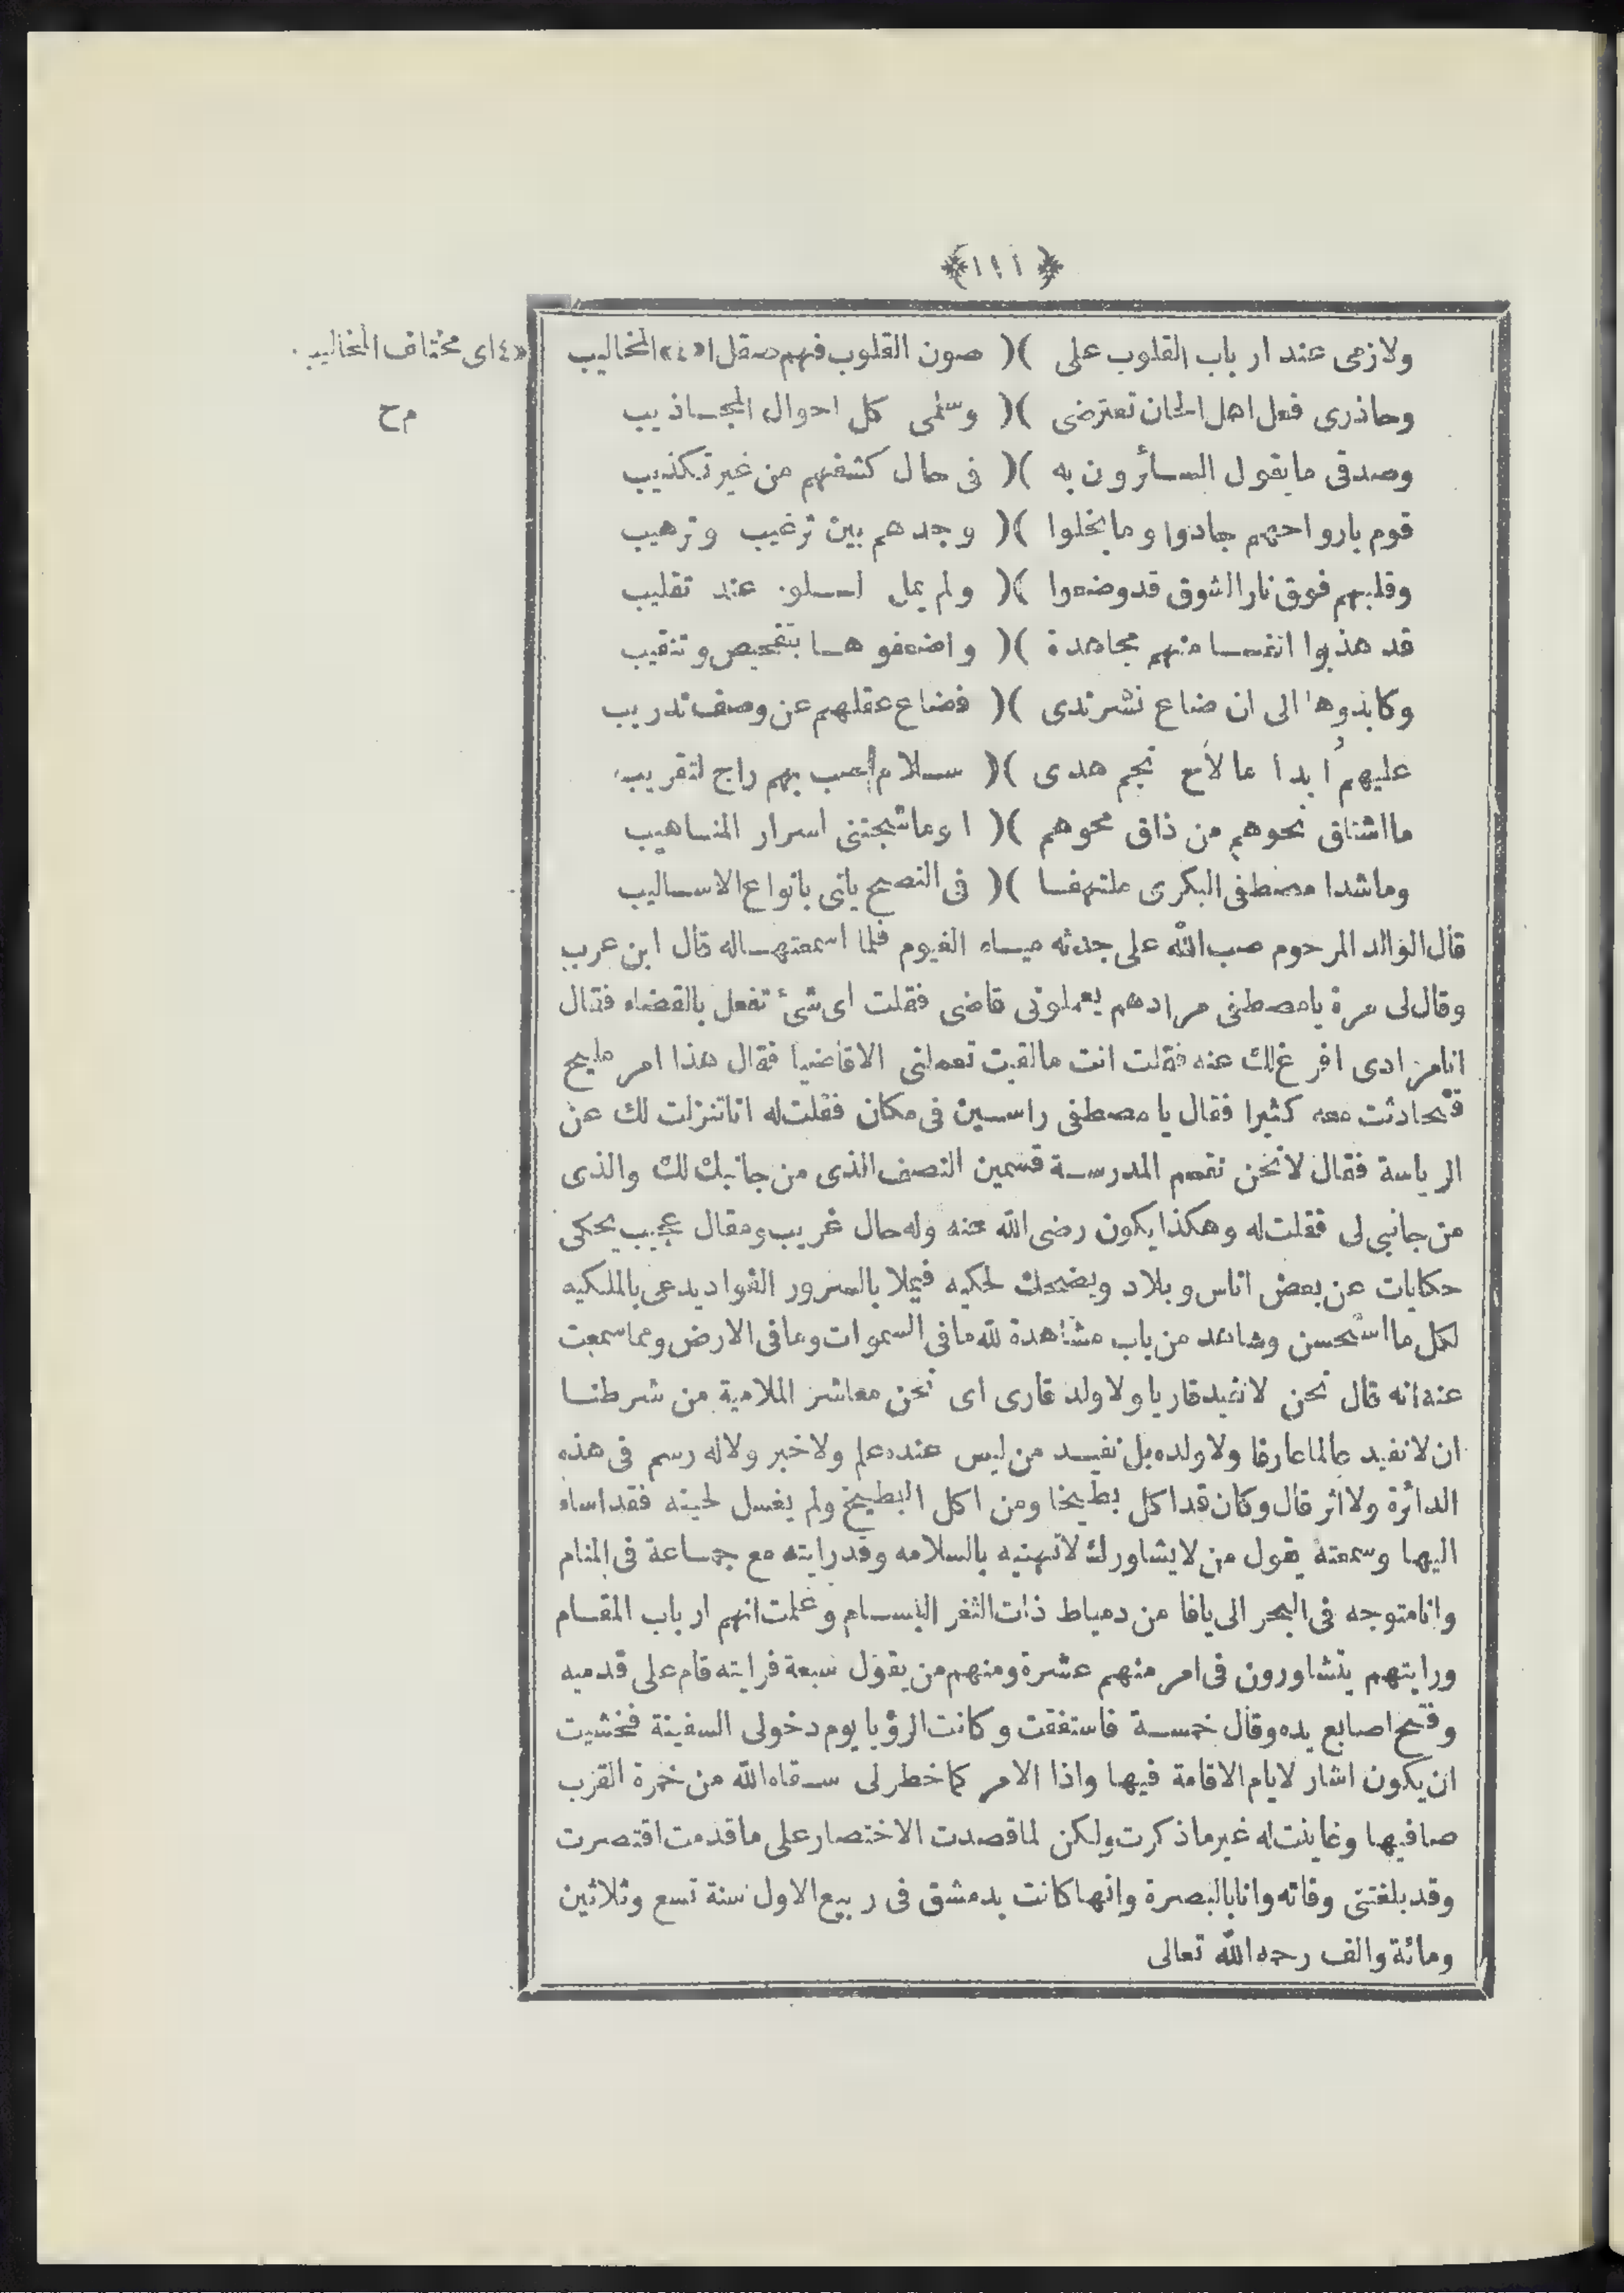 ﴿ ١١١ ﴾
ولازمى عند ارباب القلوب على )( صون القلوب فهم صقل ا«٤» المخاليب
«٤ اى مختلف المخاليب
م ح
وحاذرى فعل اهل الحان تعترضى )( وسلمى كل احوال المجاذيب
وصدقى ما يقول السائرون به )( فى حال كشفهم من غير تكذيب
قوم بارواحهم جادوا وما بخلوا )( وجدهم بين ترغيب وترهيب
وقلبهم فوق نار الشوق قد وضعوا )( ولم يمل لسلو عند تقليب
قد هذبوا انفسا منهم مجاهدة )( واضعفوها بتفحيص وتنقيب
وكابدوها الى ان ضاع نشر ندى )( فضاع عقلهم عن وصف تدريب
عليهم ابدا ما لاح نجم هدى )( سلام صب بهم راج لتقريب
ما اشتاق نحوهم من ذاق محوهم )( او ما شجتنى اسرار المناهيب
وما شدا مصطفى البكرى ملتهفا )( فى النصح ياتى بانواع الاساليب
قال الوالد المرحوم صب الله على جدثه مياه الفيوم فلما اسمعتها له قال ابن عرب
وقال لى مرة يا مصطفى مرادهم يعملونى قاضى فقلت اى شئ تفعل بالقضاء فقال
انا مرادى افرغ لك عنه فقلت انت ما لقيت تعملنى الا قاضيا فقال هذا امر مليح
فتحادثت معه كثيرا فقال يا مصطفى راسين فى مكان فقلت له انا تنزلت لك عن
الرياسة فقال لا نحن نقسم المدرسة قسمين النصف الذى من جانبك لك والذى
من جانبى لى فقلت له وهكذا يكون رضى الله عنه وله حال غريب ومقال عجيب يحكى
حكايات عن بعض اناس وبلاد ويضحك لحكيه فيملا بالسرور الفواد يدعى بالملكيه
لكل ما استحسن وشاهد من باب مشاهدة لله ما فى السموات وما فى الارض ومما سمعت
عنه انه قال نحن لا نفيد قاريا ولا ولد قارى اى نحن معاشر الملامية من شرطنا
ان لا نفيد عالما عارفا ولا ولده بل نفيد من ليس عنده علم ولا خبر ولا له رسم فى هذه
الدائرة ولا اثر قال وكان قد اكل بطيخا ومن اكل البطيخ ولم يغسل لحيته فقد اساء
اليها وسمعته يقول من لا يشاورك لا تهنيه بالسلامه وقد رايته مع جماعة فى المنام
وانا متوجه فى البحر الى يافا من دمياط ذات الثغر البسام وعلمت انهم ارباب المقام
ورايتهم يتشاورون فى امر منهم عشرة ومنهم من يقول سبعة فرايته قام على قدميه
وفتح اصابع يده وقال خمسة فاستفقت وكانت الرؤيا يوم دخولى السفينة فخشيت
ان يكون اشار لايام الاقامة فيها واذا الامر كما خطر لى سقاه الله من خمرة القرب
صافيها وعاينت له غير ما ذكرت ولكن لما قصدت الاختصار على ما قدمت اقتصرت
وقد بلغتنى وفاته وانا بالبصرة وانها كانت بدمشق فى ربيع الاول سنة تسع وثلاثين
ومائة والف رحمه الله تعالى